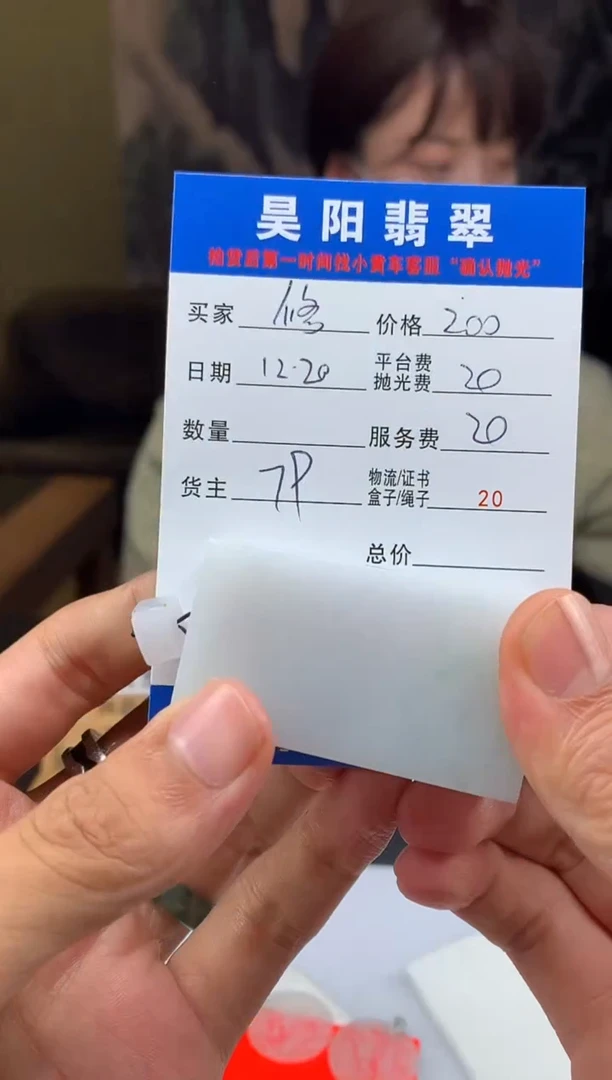 昊阳翡翠
拍货后第一时间找小黄车客服“确认抛光”
买家 修 价格 200
日期 12.20 平台费 抛光费 20
数量 服务费 20
货主 物流/证书 盒子/绳子 20
总价